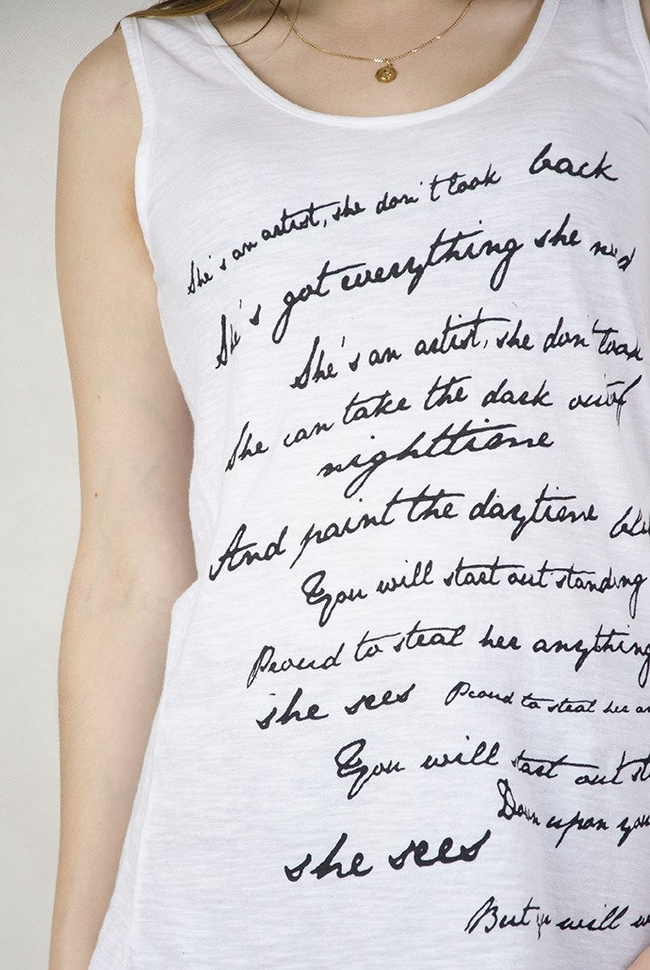 She's an artist, she don't look back
She's got everything she need
She's an artist, she don't look
She can take the dark out of
nighttime
And paint the daytime
You will start out standing
Proud to steal her anything
she sees Proud to steal her
You will start out
Down upon
she sees
But will